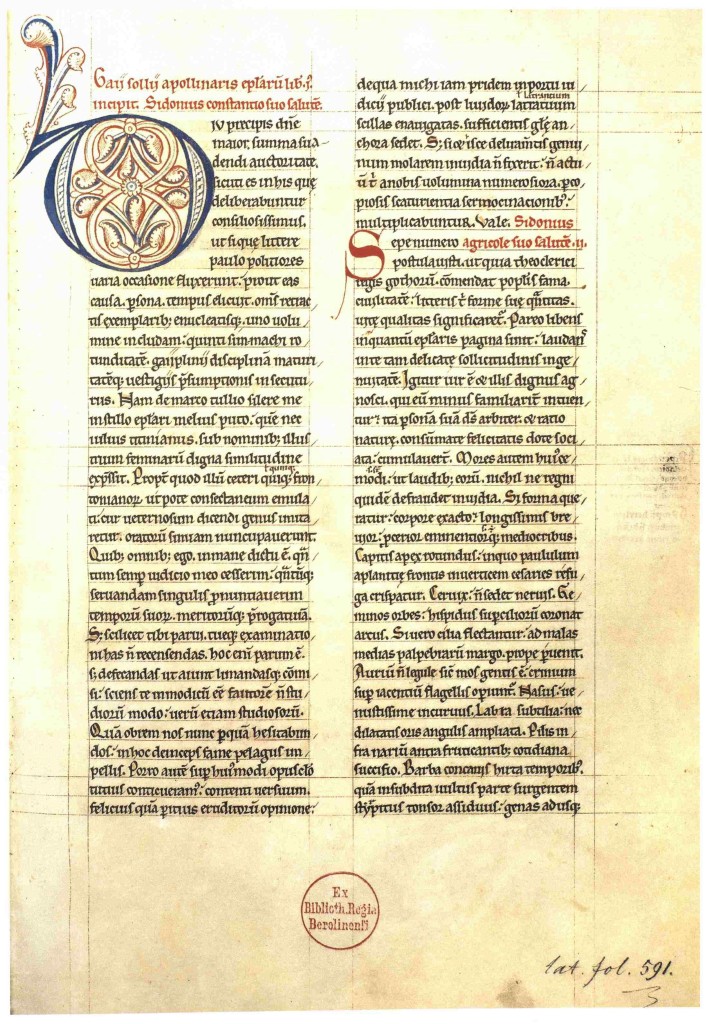 Gaij sollij apollinaris epl̃arũ lib̃. p̃.
incipit. Sidonius constantio suo salutẽ.
DIV precipis dñe
maior. summa sua-
dendi auctoritate.
sicuti es in his que
deliberabuntur
consiliosissimus.
ut si que littere
paulo politiores
uaria occasione fluxerunt. prout eas
causa. ꝑsona. tempus elicuit. om̃s retrac/
tis exemplarib; enucleatisq;. uno uolu/
mine includam. quinti simmachi ro/
tunditatẽ. gaij plinij disciplinã maturi/
tatẽq; uestigijs p̃sumptionis insecutu/
rus. Nam de marco tullio silere me
in stilo epl̃ari melius puto. que nec
iulius titinianus. sub nominib; illus/
trium feminarũ digna similitudine
exp̃ssit. Propt̃ quod illũ ceteri quiq; fron/
tonianoꝝ. utpote consectaneum emula/
ti. cur ueternosum dicendi genus imita/
retur. oratorũ simiam nuncupauerunt.
Quib; omnib; ego. inmane dictu ẽ. qñ/
tum semꝑ iudicio meo cesserim. qñtũq;
seruandam singulis ꝓnuntiauerim
temporũ suoꝝ. meritorũq; p̃rogatiuã.
S; scilicet tibi parui. tueq; examinatio/
ni has ñ recensendas. hoc eni parum ẽ.
s; defecandas ut aiunt limandasq; cõmi/
si. sciens te inmodicũ eẽ fautorẽ ñ stu/
diorũ modo. uerũ etiam studiosorũ.
Quã obrem nos nunc ꝑquã hesitabun/
dos. in hoc deinceps fame pelagus im/
pellis. Porro autẽ suꝑ hui'modi opusclõ
tutius conticueram'. contenti uersuum.
felicius quã ꝑitius editorũ opinione.
de qua michi iam pridem in portu iu/
dicij publici. post liuidoꝝ latratuum
latrantium
scillas enauigatas. sufficientis glẽ an/
chora sedet. S; si &̃ isce deliramtis genu/
inum molarem inuidia ñ fixerit. ñ actu/
tũ t̃ a nobis uolumina numerosiora. ꝑco/
piosis scaturientia sermocinacionib'.
multiplicabuntur. Vale. Sidonius
Sepe numero agricole suo salutẽ. ii.
postulauisti. ut quia theoderici
regis gothorũ. cõmendat popl̃is fama.
ciuilitatẽ. litteris t̃ forme suę qñtitas.
uitę qualitas significaret. Pareo libens
inquantũ epl̃aris pagina sinit. laudans
in te tam delicate sollicitudinis inge/
nuitatẽ. Igitur uir ẽ & illis dignus ag/
nosci. qui eũ minus familiarit̃ intuen/
tur. ita ꝑsonã suã d̃s arbiter. & ratio
naturę. consũmate felicitatis dote soci/
ata. cumulauer̃t. Mores autem hui'ce/
modi. ut laudib; eorũ. nichil ne regni
quidẽ defraudet inuidia. Si forma que/
ratur. corpore exacto. longissimis bre/
uior. ꝓcerior eminentiorq; mediocribus.
Capitis apex rotundus. in quo paululum
a planitie frontis in uerticem cesaries refu/
ga crispatur. Ceruix. ñ sedet neruis. Ge/
minos orbes. hispidus suꝑciliorũ coronat
arcus. Si uero cilia flectantur. ad malas
medias palpebrarũ margo. prope ꝑuenit.
Auriũ ñ legule sic̃ mos gentis ẽ. crinium
suꝑ iacentiũ flagellis oꝑiunt̃. Nasus. ue/
nustissime incuruus. Labra subtilia. nec
dilatatis oris angulis ampliata. Pilis in/
fra nariũ antra fruticantib; cotidiana
succisio. Barba concauis hirta temporib'.
quã in subdita uultus parte surgentem
stirpitus tonsor assiduus. genas adusq;
Ex
Biblioth. Regia
Berolinensi
lat. fol. 591.